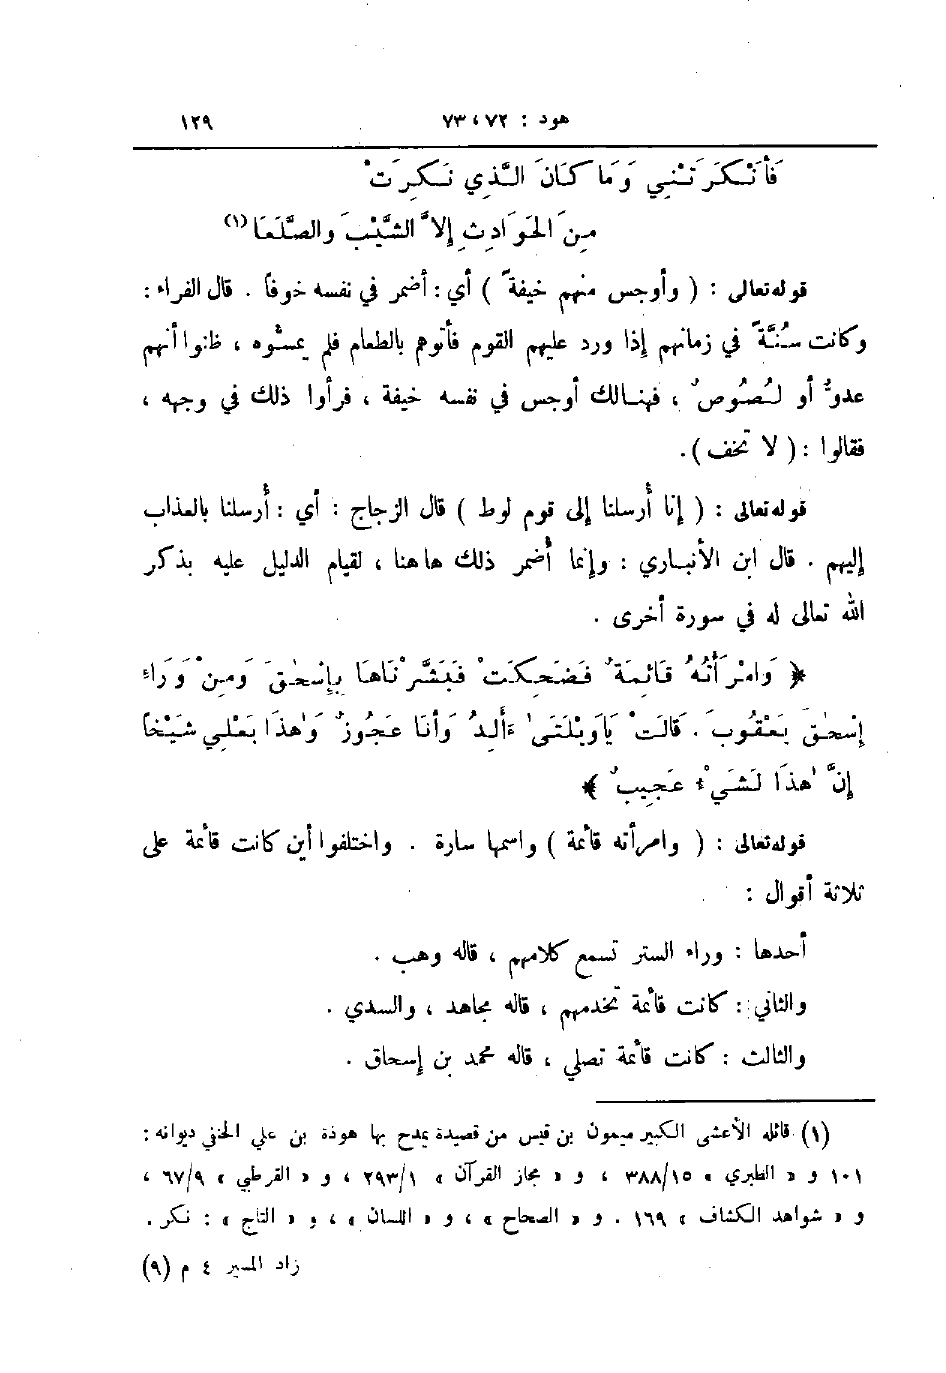 هود : ٧٢ ، ٧٣ ١٢٩
فَأَنْكَرَتْنِي وَمَا كَانَ الَّذِي نَكِرَتْ
مِنَ الحَوَادِثِ إِلاَّ الشَّيْبَ والصَّلَعَا (١)
قوله تعالى : ( وأوجس منهم خيفةً ) أي : أضمر في نفسه خوفاً . قال الفراء :
وكانت سُنَّةً في زمانهم إذا ورد عليهم القوم فأتوهم بالطعام فلم يمسُّوه ، ظنوا أنهم
عدوٌّ أو لُصُوصٌ ، فهنالك أوجس في نفسه خيفة ، فرأوا ذلك في وجهه ،
فقالوا : ( لا تخف ) .
قوله تعالى : ( إنا أُرسلنا إلى قوم لوط ) قال الزجاج : أي : أُرسلنا بالعذاب
إليهم . قال ابن الأنباري : وإنما أُضمر ذلك هاهنا ، لقيام الدليل عليه بذكر
الله تعالى له في سورة أخرى .
﴿ وَامْرَأَتُهُ قَائِمَةٌ فَضَحِكَتْ فَبَشَّرْنَاهَا بِإِسْحٰقَ وَمِنْ وَرَاءِ
إِسْحٰقَ يَعْقُوبَ . قَالَتْ يَاوَيْلَتَىٰ ءَأَلِدُ وَأَنَا عَجُوزٌ وَهٰذَا بَعْلِي شَيْخاً
إِنَّ هٰذَا لَشَيْءٌ عَجِيبٌ ﴾
قوله تعالى : ( وامرأته قائمة ) واسمها سارة . واختلفوا أين كانت قائمة على
ثلاثة أقوال :
أحدها : وراء الستر تسمع كلامهم ، قاله وهب .
والثاني : كانت قائمة تخدمهم ، قاله مجاهد ، والسدي .
والثالث : كانت قائمة تصلي ، قاله محمد بن إسحاق .
(١) قائله الأعشى الكبير ميمون بن قيس من قصيدة يمدح بها هوذة بن علي الحنفي ديوانه :
١٠١ و « الطبري » ٣٨٨/١٥ ، و « مجاز القرآن » ٢٩٣/١ ، و « القرطبي » ٦٧/٩ ،
و « شواهد الكشاف » ١٦٩ . و « الصحاح » ، و « اللسان » ، و « التاج » : نكر .
زاد المسير ٤ م (٩)